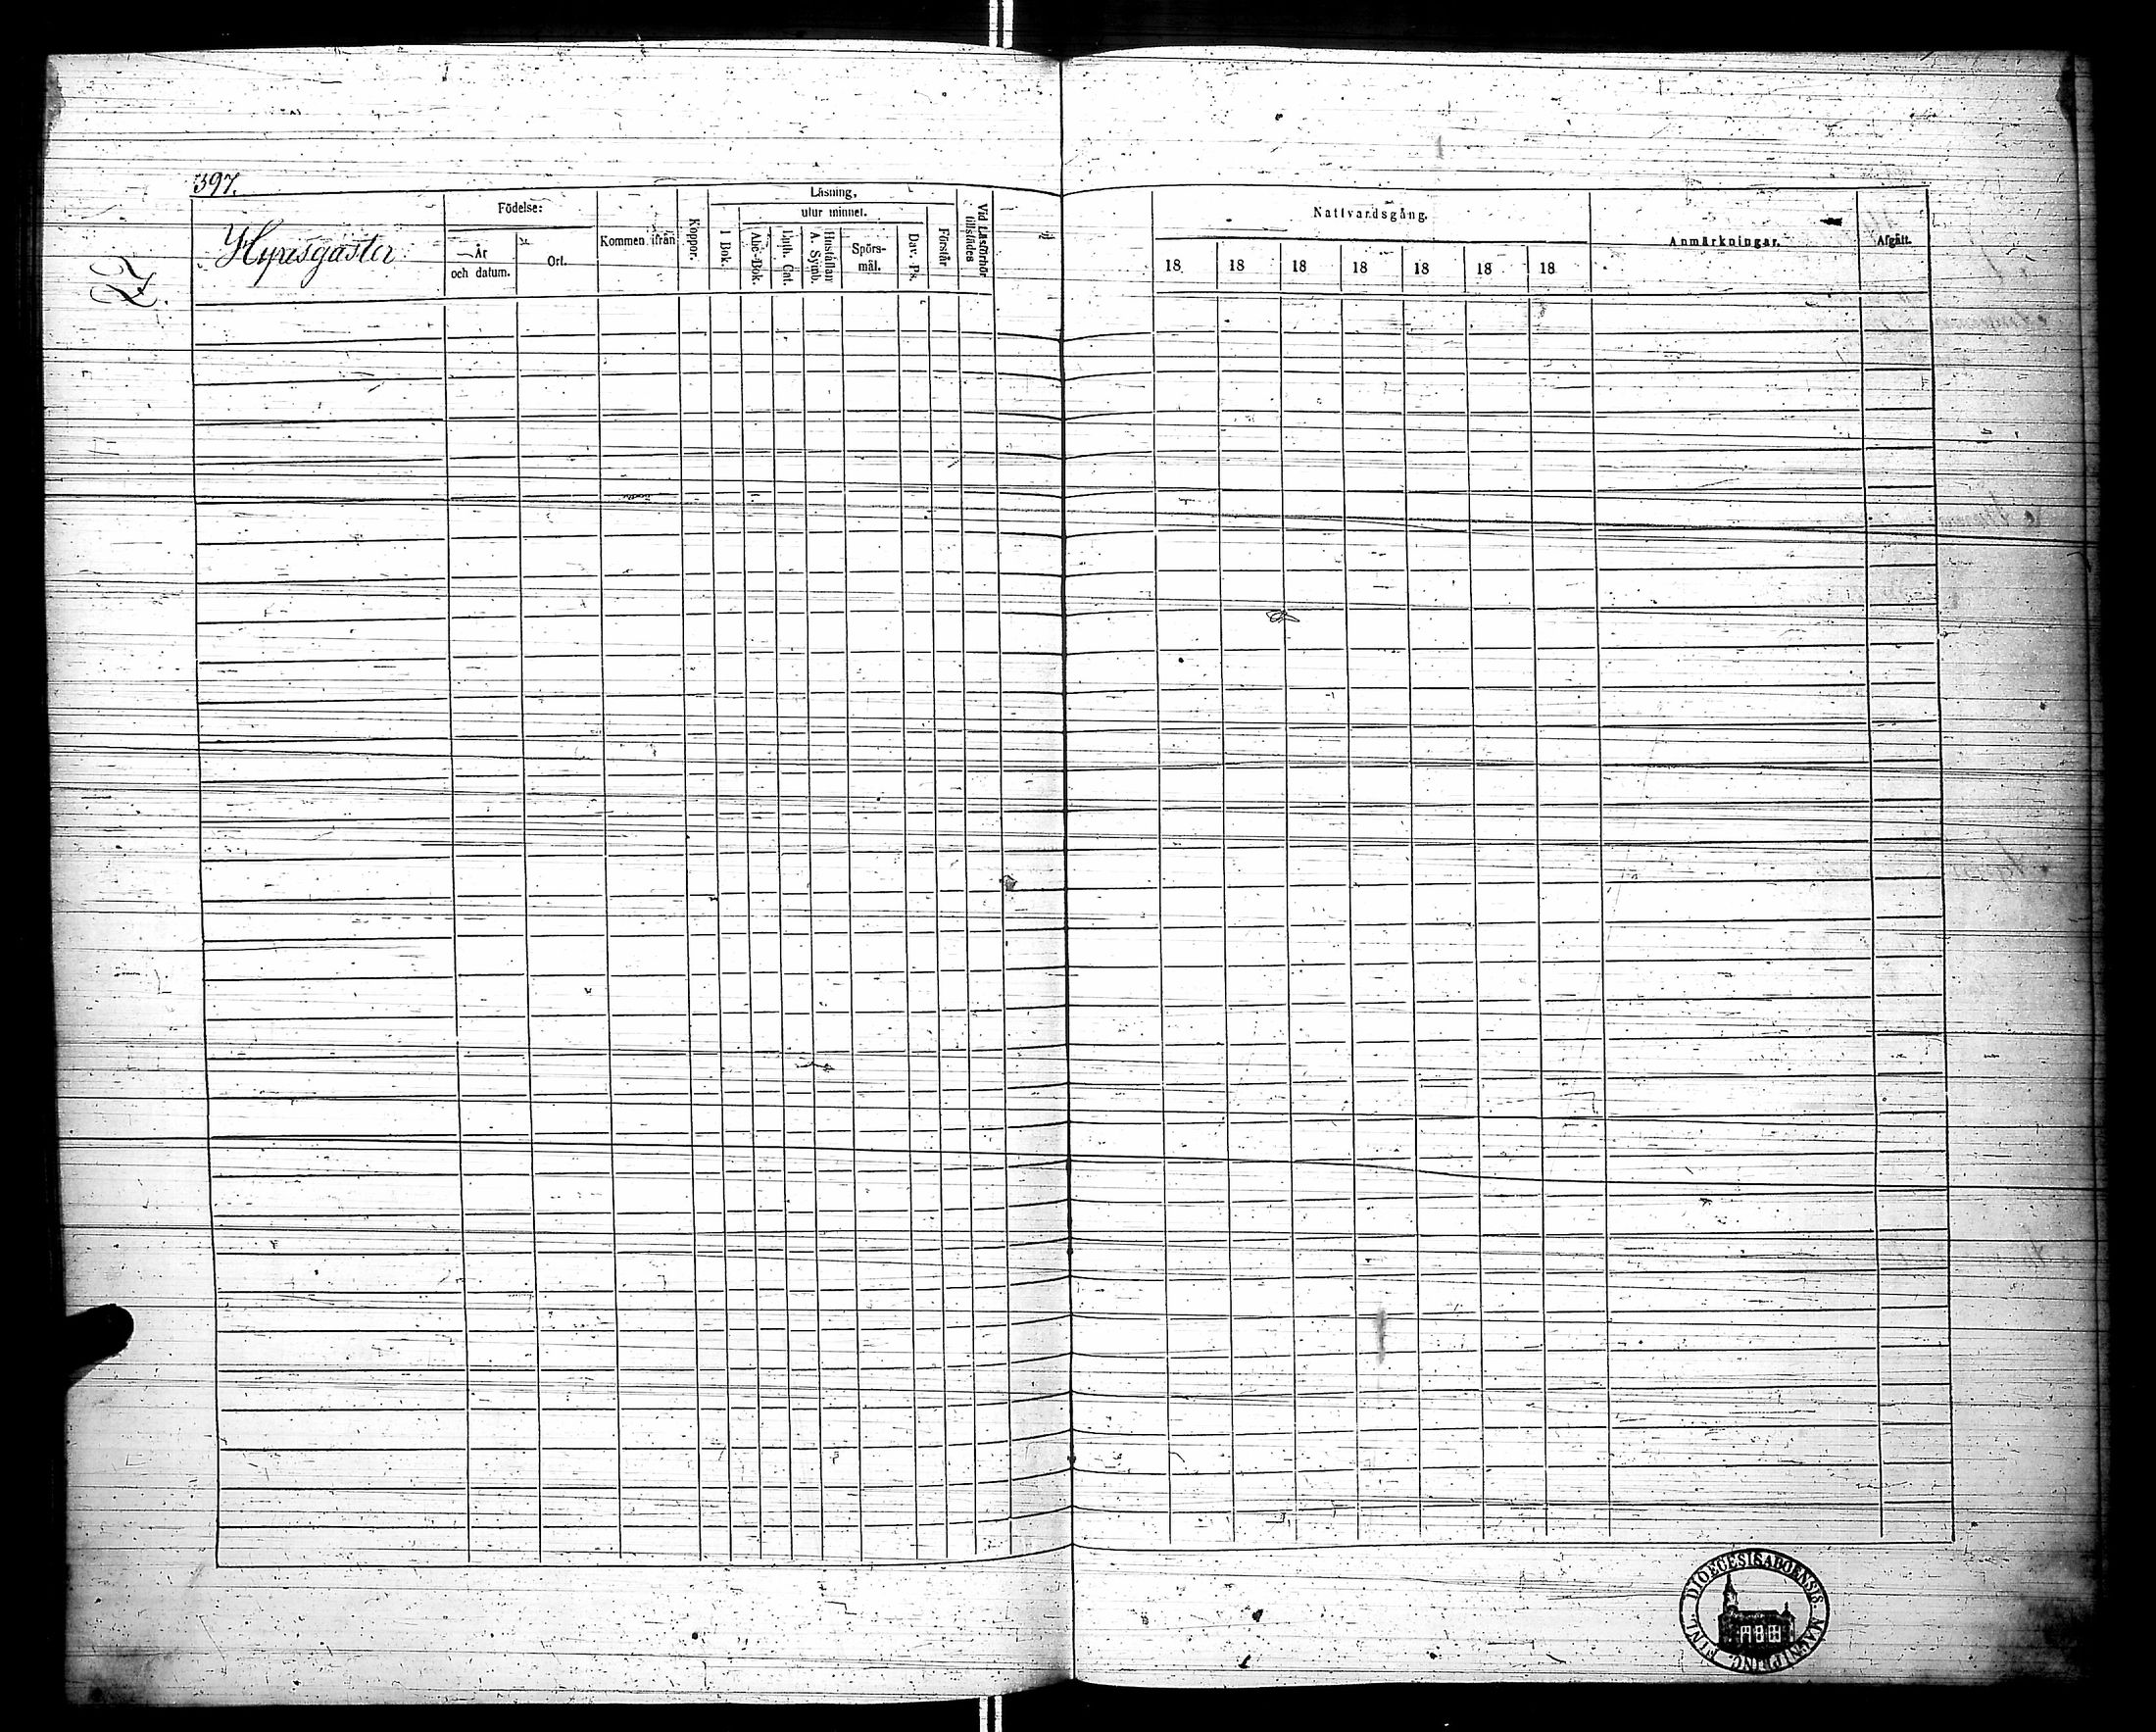 397.
Hyresgäster
Z.
Födelse:
År
och datum.
Ort.
Kommen ifrån
Koppor.
Läsning,
utur minnet.
I Bok.
Abc-Bok.
Luth. Cat.
Hustaflan
A. Symb.
Spörs-
mål.
Dav. Ps.
Förstår
Vid Läsförhör
tillstädes
Nattvardsgång.
18 18 18 18 18 18 18
Anmärkningar.
Afgått.
DIOECESIS ABOENSIS. MAGNI PRINC. FINL.